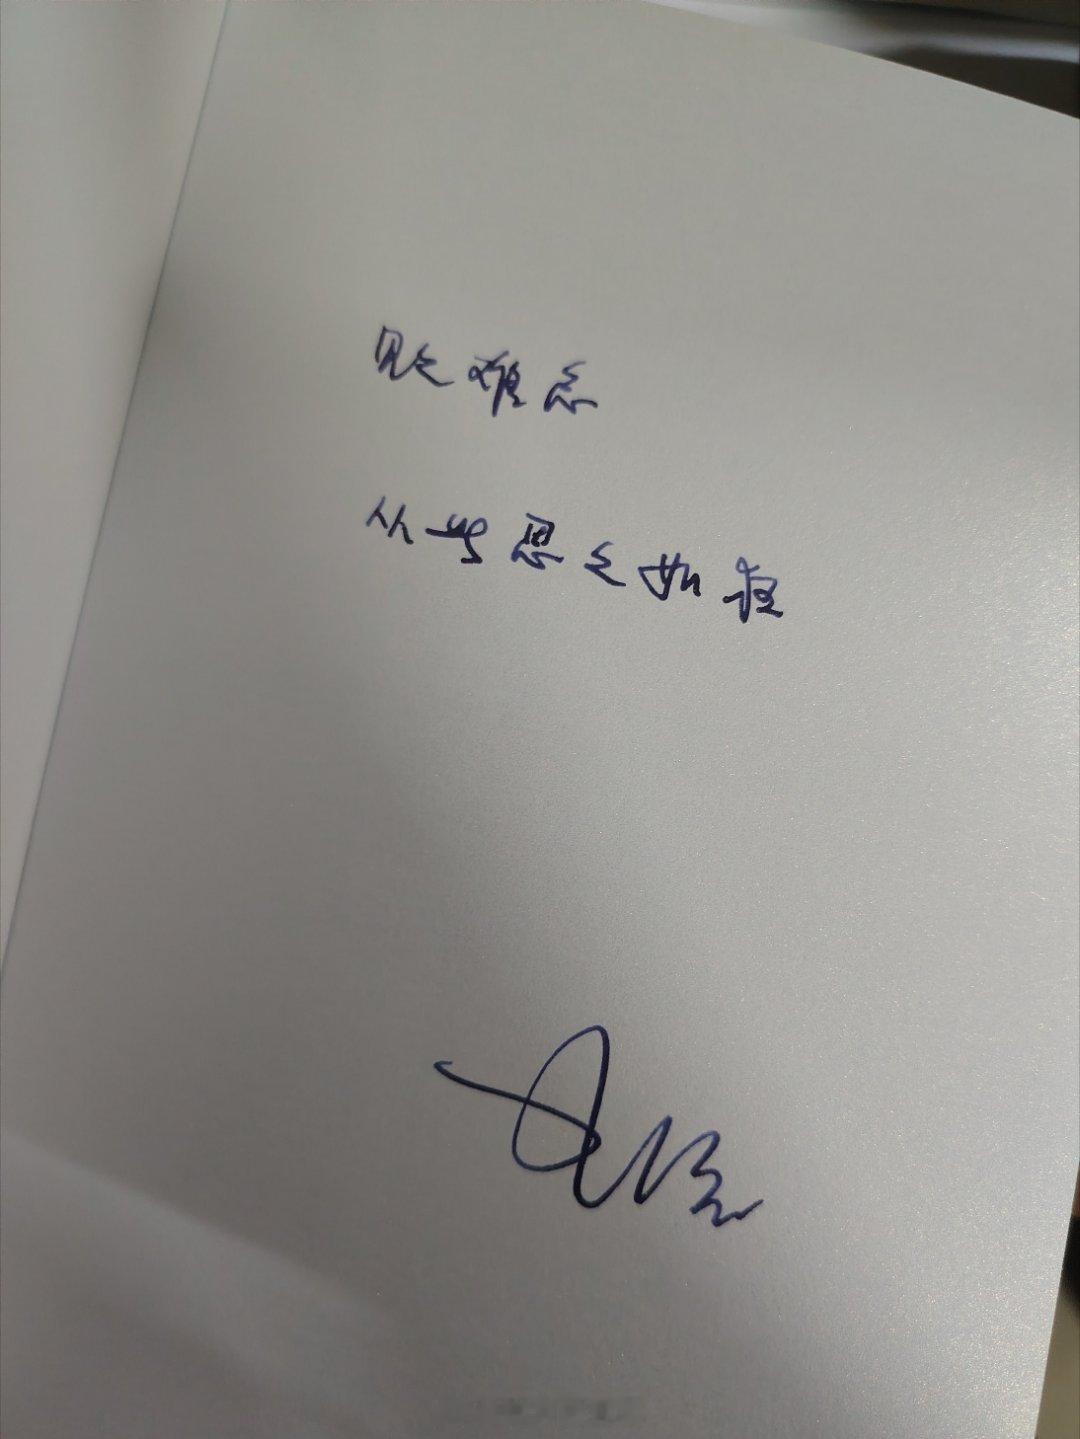 见之难忘
从此思之如狂